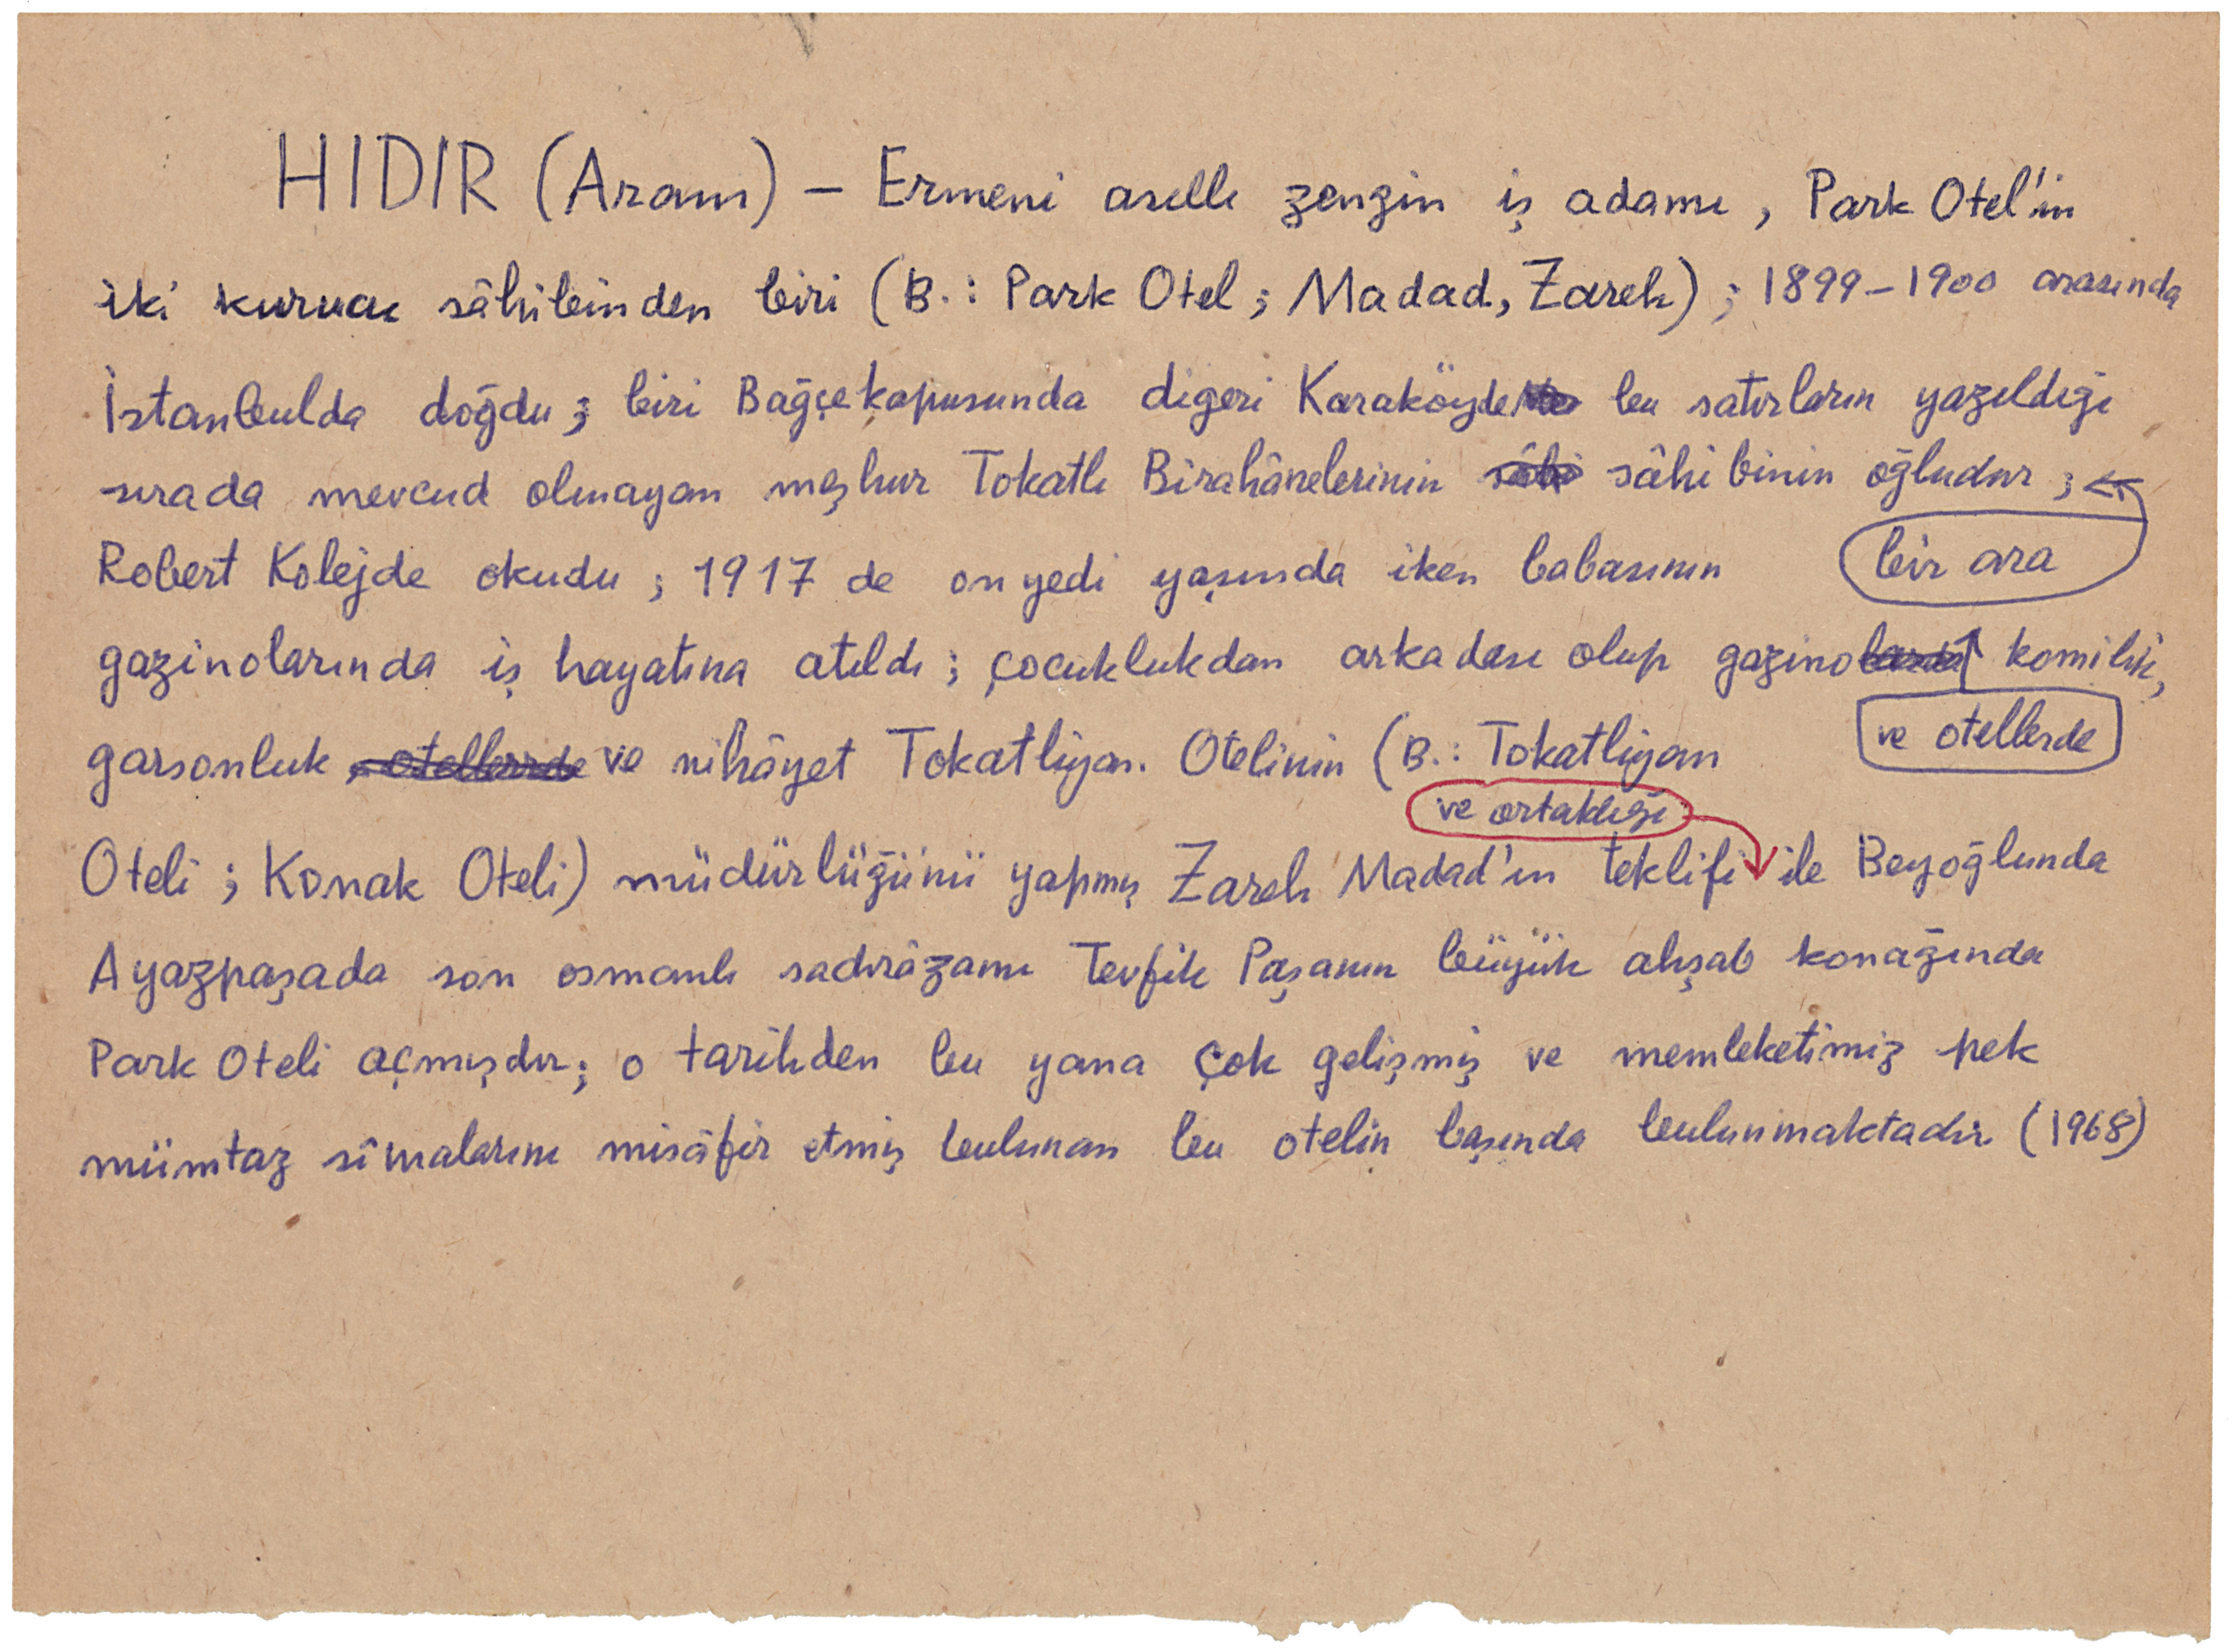 HIDIR (Aram) – Ermeni asıllı zengin iş adamı, Park Otel'in
iki kurucu sâhibinden biri (B.: Park Otel; Madad, Zareh); 1899–1900 arasında
İstanbulda doğdu; biri Bağçekapusunda digeri Karaköyde bu satırların yazıldığı
sırada mevcud olmayan meşhur Tokatlı Birahânelerinin sâhi sâhibinin oğludur;
Robert Kolejde okudu; 1917 de on yedi yaşında iken babasının
bir ara
gazinolarında iş hayatına atıldı; çocuklukdan arkadaşı olup gazinolarda komilik,
garsonluk, otellerde ve nihâyet Tokatliyan Otelinin (B.: Tokatliyan
ve otellerde
ve ortaklığı
Oteli; Konak Oteli) müdürlüğünü yapmış Zareh Madad'ın teklifi ile Beyoğlunda
Ayazpaşada son osmanlı sadırâzamı Tevfik Paşanın büyük ahşab konağında
Park Oteli açmışdır; o tarihden bu yana çok gelişmiş ve memleketimiz pek
mümtaz sîmalarını misâfir etmiş bulunan bu otelin başında bulunmaktadır (1968)